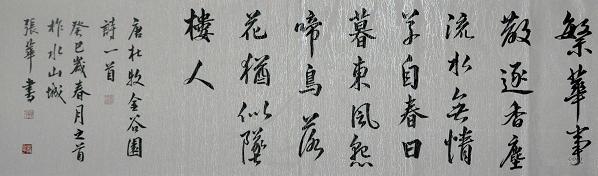 繁華事
散逐香塵
流水無情
草自春日
暮東風怨
啼鳥落
花猶似墜
樓人
唐杜牧金谷園
詩一首
癸巳歲春月之首
柞水山城
張華書